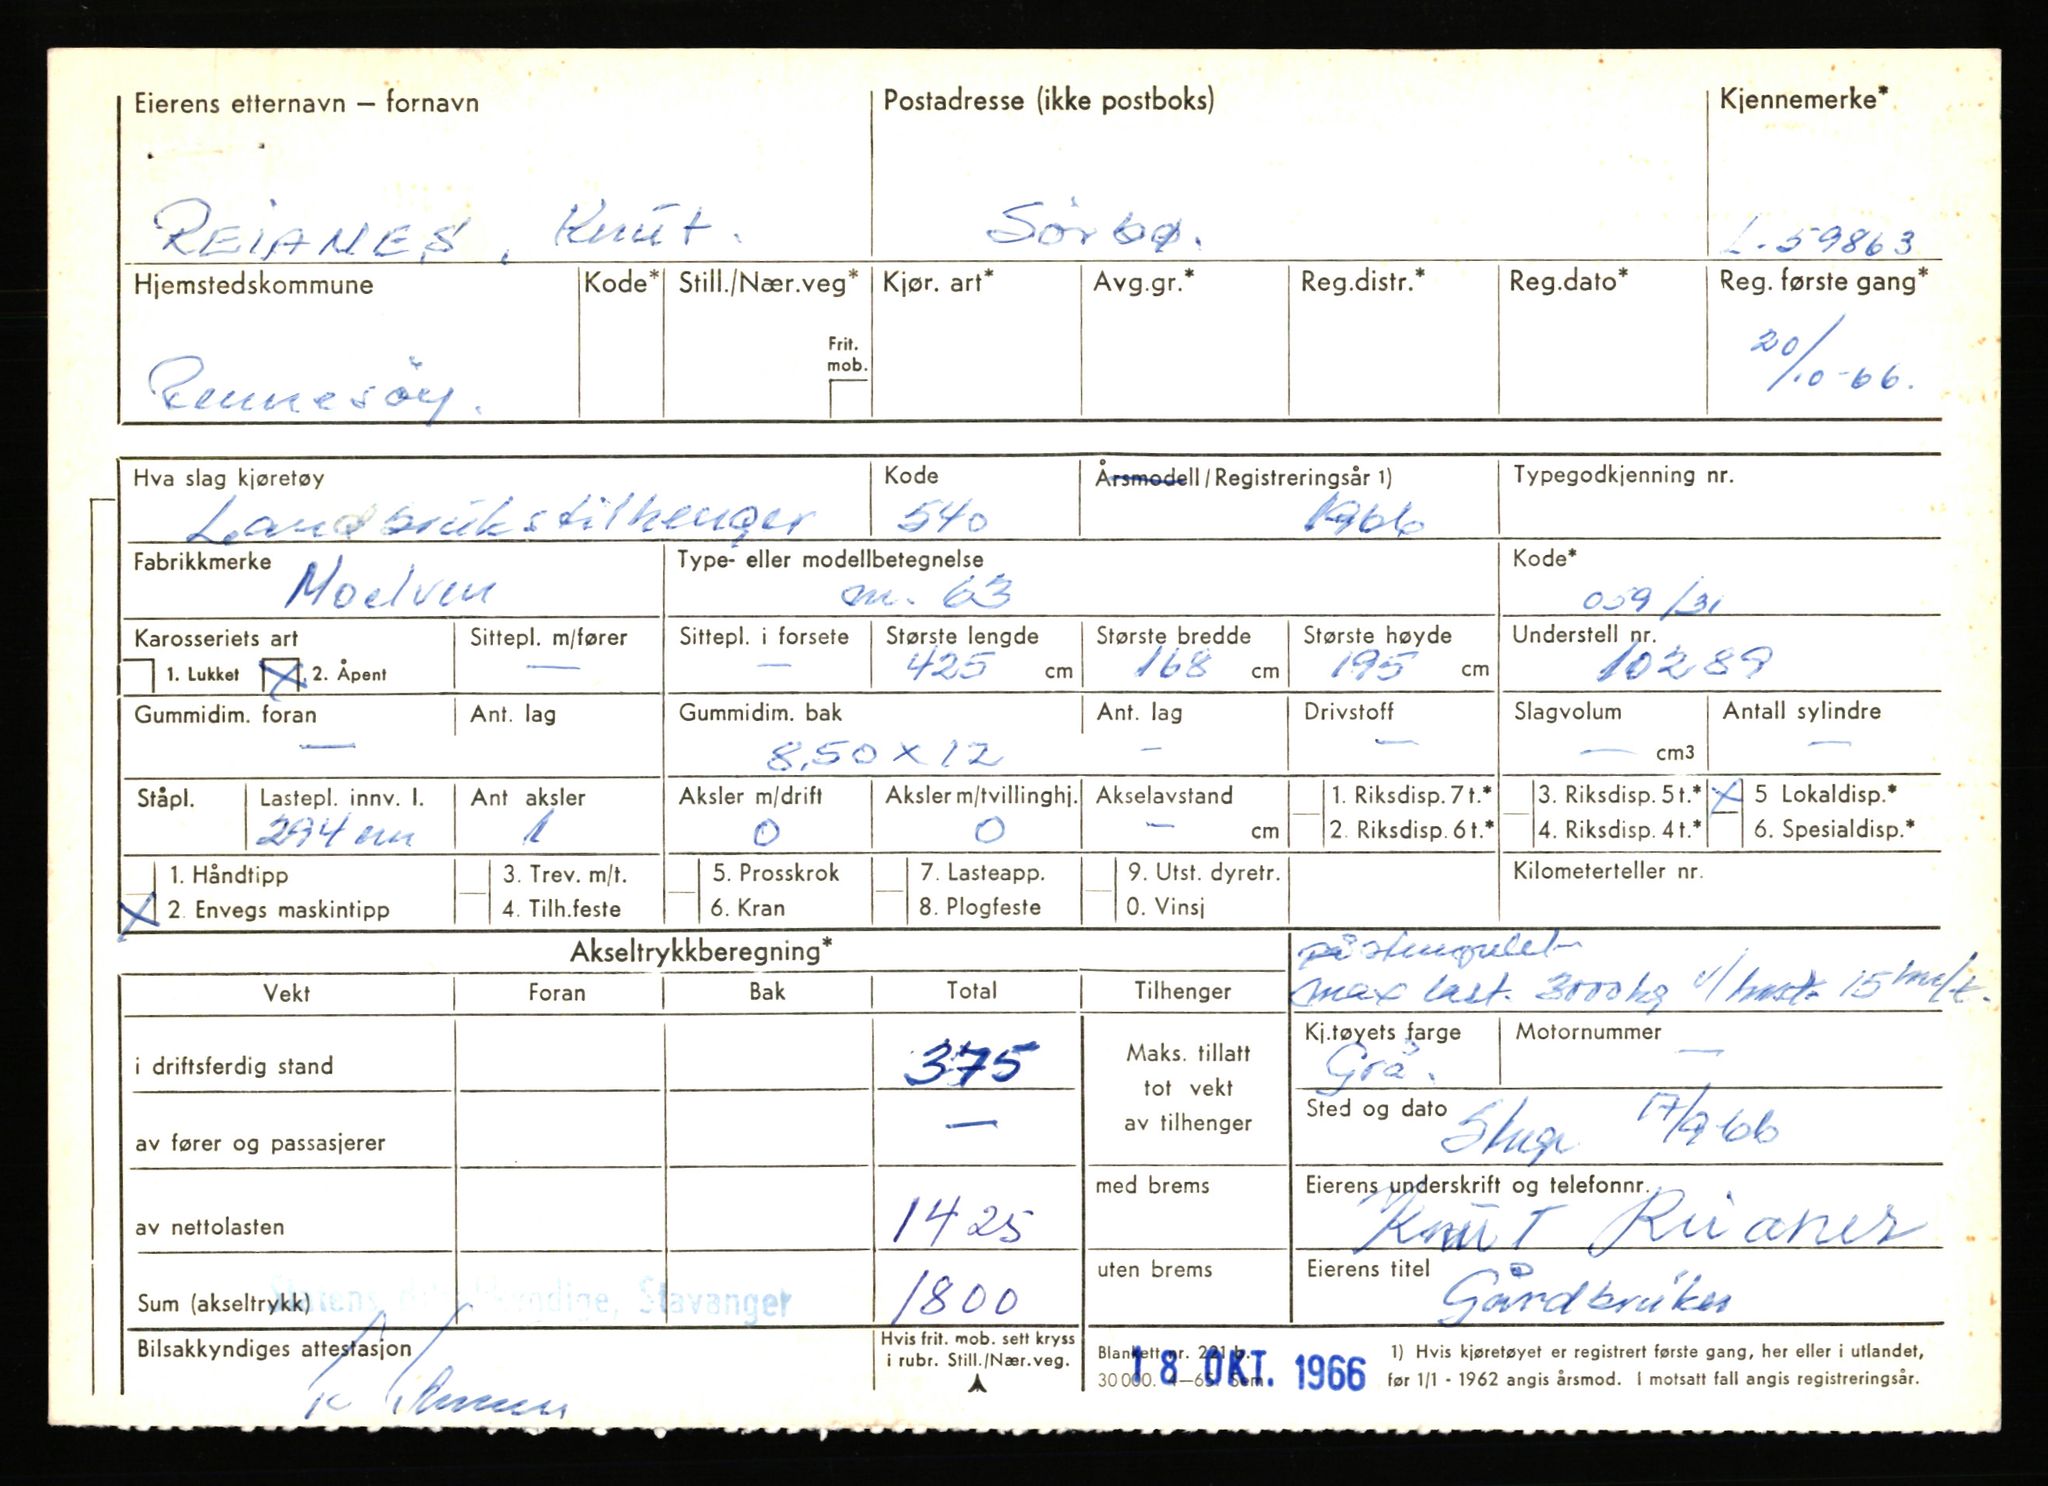 Eierens etternavn – fornavn Postadresse (ikke postboks) Kjennemerke*
REIANES, Knut. Sörbø. L-59863
Hjemstedskommune Kode* Still./Nær.veg* Kjør. art* Avg.gr.* Reg.distr.* Reg.dato* Reg. første gang*
Frit. mob.
Rennesöy. 20/10-66.
Hva slag kjøretøy Kode Årsmodell/Registreringsår 1) Typegodkjenning nr.
Landbrukstilhenger 540 1966
Fabrikkmerke Type- eller modellbetegnelse Kode*
Moelven m. 63 059/31
Karosseriets art Sittepl. m/fører Sittepl. i forsete Største lengde Største bredde Største høyde Understell nr.
1. Lukket X 2. Åpent — — 425 cm 168 cm 195 cm 10289
Gummidim. foran Ant. lag Gummidim. bak Ant. lag Drivstoff Slagvolum Antall sylindre
— 8,50 x 12 — — — cm3 —
Ståpl. Lastepl. innv. l. Ant aksler Aksler m/drift Aksler m/tvillinghj. Akselavstand 1. Riksdisp. 7 t.* 3. Riksdisp. 5 t.* X 5 Lokaldisp.*
294 cm 1 0 0 — cm 2. Riksdisp. 6 t.* 4. Riksdisp. 4 t.* 6. Spesialdisp.*
1. Håndtipp 3. Trev. m/t. 5. Prosskrok 7. Lasteapp. 9. Utst. dyretr. Kilometerteller nr.
X 2. Envegs maskintipp 4. Tilh.feste 6. Kran 8. Plogfeste 0. Vinsj
Akseltrykkberegning* påstemplet
Vekt Foran Bak Total Tilhenger max last. 3000 kg v/hast. 15 km/t.
i driftsferdig stand 375 Maks. tillatt tot vekt av tilhenger Kj.tøyets farge Motornummer
Grå. —
av fører og passasjerer — Sted og dato 17/9 66
av nettolasten 1425 med brems Eierens underskrift og telefonnr.
Knut Reianes
Sum (akseltrykk) 1800 uten brems Eierens titel
Statens bilsakkyndige, Stavanger Gårdbruker
Bilsakkyndiges attestasjon Hvis frit. mob. sett kryss i rubr. Still./Nær.veg. Blankett nr. 221 b. 1) Hvis kjøretøyet er registrert første gang, her eller i utlandet,
30 000. 18 OKT. 1966 før 1/1 - 1962 angis årsmod. I motsatt fall angis registreringsår.